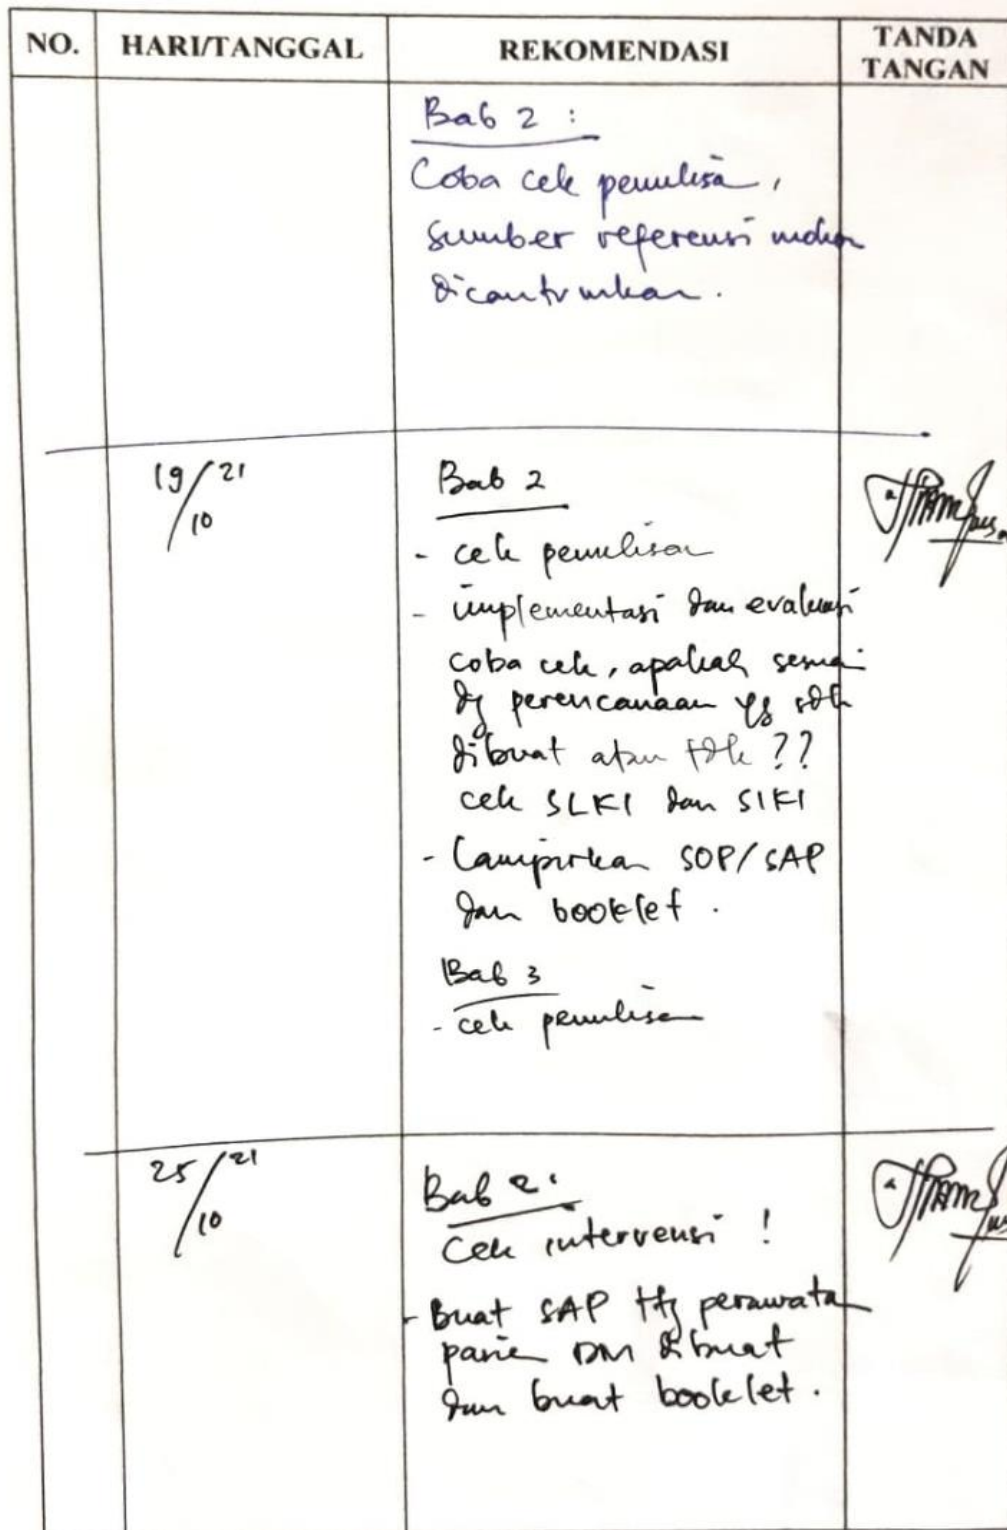 NO. HARI/TANGGAL REKOMENDASI TANDA TANGAN
Bab 2 :
Coba cek penulisan,
sumber referensi mohon
dicantumkan.
19/10 21
Bab 2
- cek penulisan
- implementasi dan evaluasi
coba cek, apakah sesuai
dg perencanaan yg sdh
dibuat atau tdk ??
cek SLKI dan SIKI
- Lampirkan SOP/SAP
dan booklet.
Bab 3
- cek penulisan
25/10 21
Bab 2.
Cek intervensi !
- Buat SAP ttg perawatan
pasien DM dibuat
dan buat booklet.